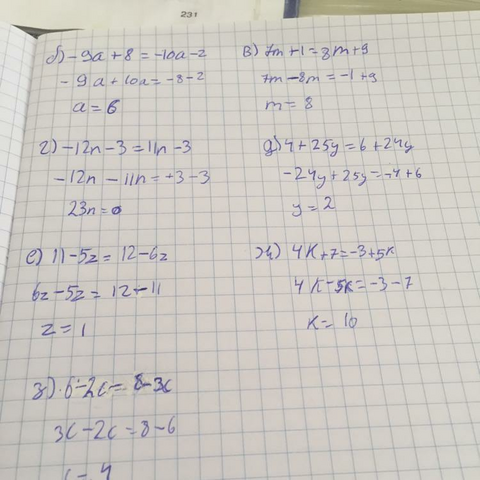 231
б) -9a+8=-10a-2
-9a+10a=-8-2
a=6
в) 7m+1=8m+9
7m-8m=-1+9
m=8
г) -12n-3=11n-3
-12n-11n=+3-3
23n=0
д) 4+25y=6+24y
-24y+25y=-4+6
y=2
е) 11-5z=12-6z
6z-5z=12-11
z=1
ж) 4k+7=-3+5k
4k-5k=-3-7
k=10
з) 6-2c=8-3c
3c-2c=8-6